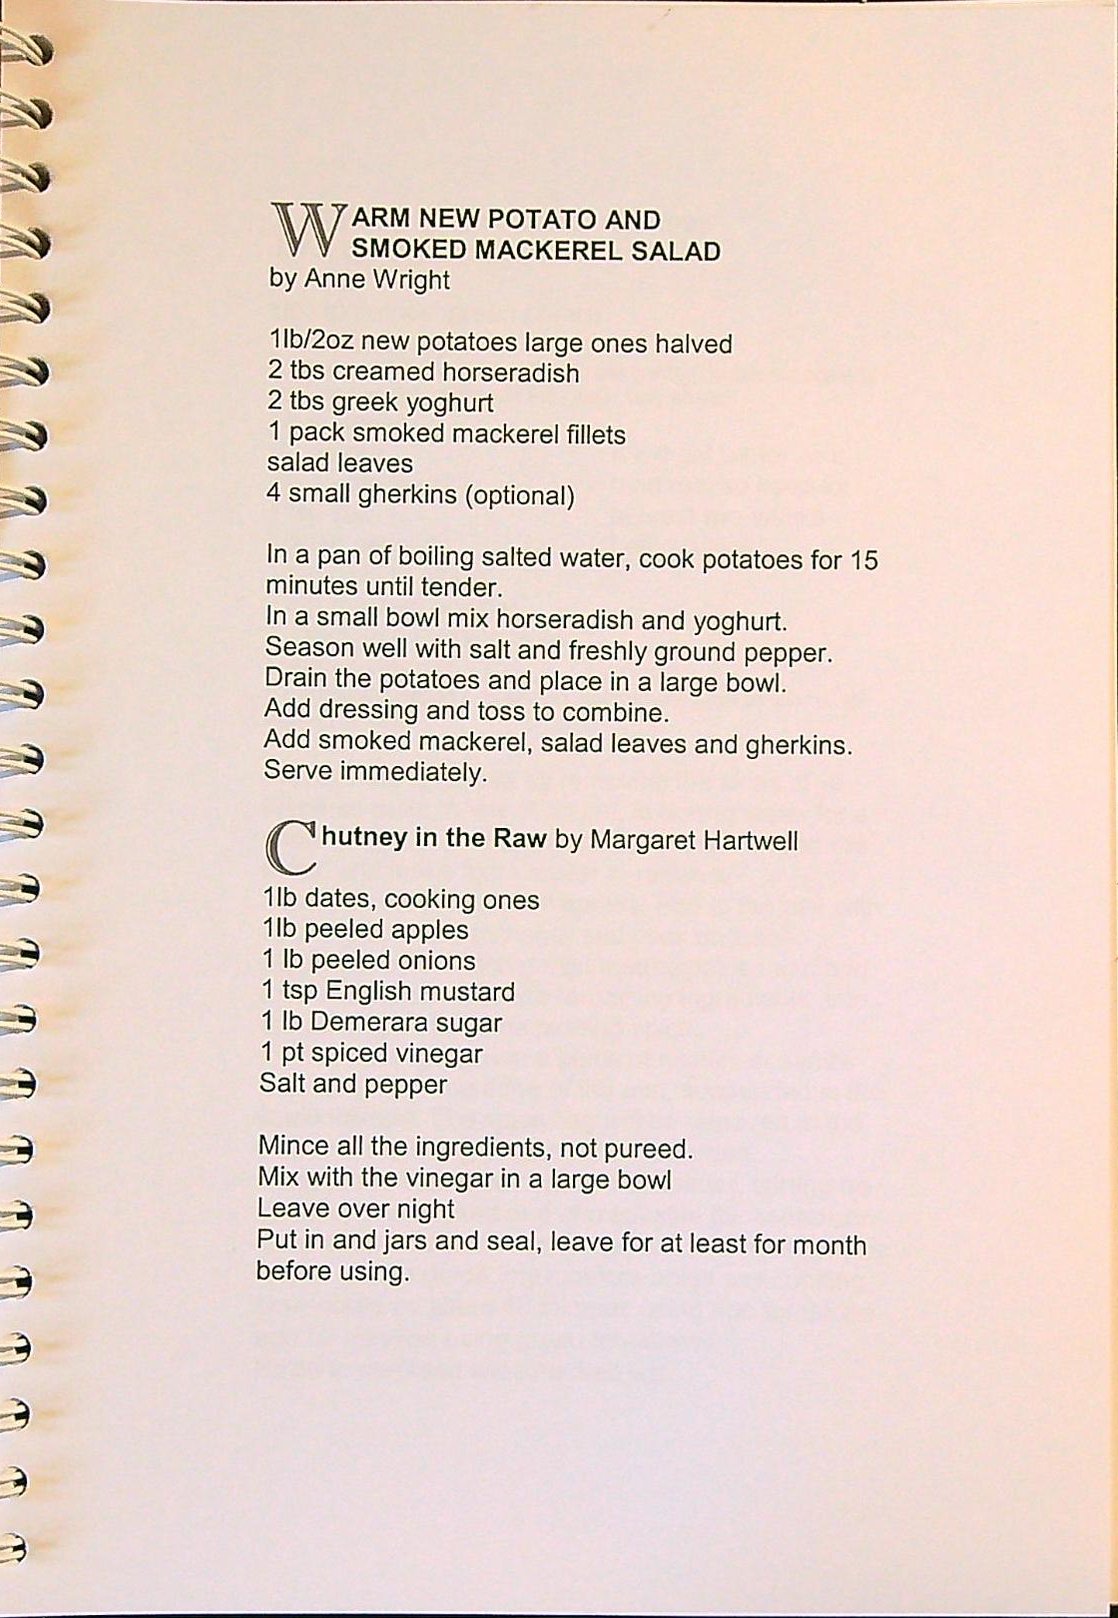 WARM NEW POTATO AND
SMOKED MACKEREL SALAD
by Anne Wright
1lb/2oz new potatoes large ones halved
2 tbs creamed horseradish
2 tbs greek yoghurt
1 pack smoked mackerel fillets
salad leaves
4 small gherkins (optional)
In a pan of boiling salted water, cook potatoes for 15
minutes until tender.
In a small bowl mix horseradish and yoghurt.
Season well with salt and freshly ground pepper.
Drain the potatoes and place in a large bowl.
Add dressing and toss to combine.
Add smoked mackerel, salad leaves and gherkins.
Serve immediately.
Chutney in the Raw by Margaret Hartwell
1lb dates, cooking ones
1lb peeled apples
1 lb peeled onions
1 tsp English mustard
1 lb Demerara sugar
1 pt spiced vinegar
Salt and pepper
Mince all the ingredients, not pureed.
Mix with the vinegar in a large bowl
Leave over night
Put in and jars and seal, leave for at least for month
before using.